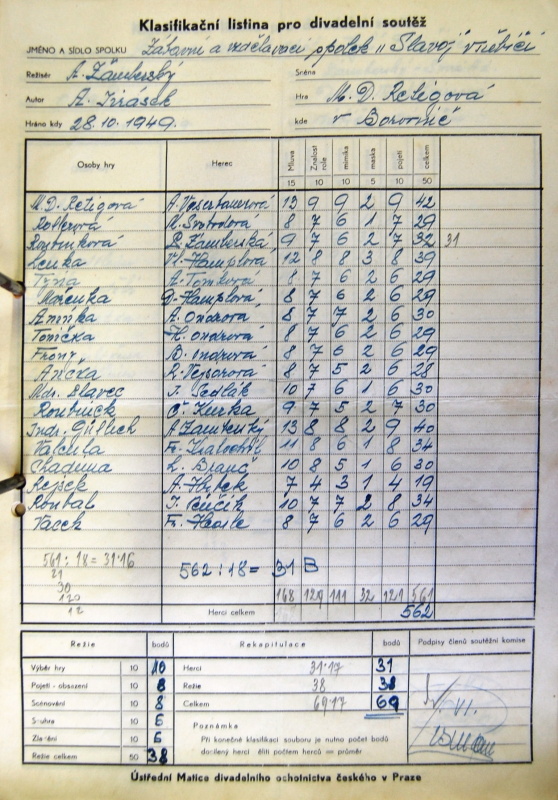 Klasifikační listina pro divadelní soutěž
JMÉNO A SÍDLO SPOLKU Zábavní a vzdělávací spolek „Slavoj"
Režisér A. Žamberský Scéna
Autor A. Jirásek Hra M. D. Retigová
Hráno kdy 28.10.1949. kde v Borovnici
Osoby hry Herec Mluva 15 Znalost role 10 mimika 10 maska 5 pojetí 10 celkem 50
M. D. Retigová 13 9 9 2 9 42
N. Svobodová 8 7 6 1 7 29
Roubínková Žamberská 9 7 6 2 7 32 31
Lenka Hamplová 12 8 8 3 8 39
Týna A. Tomková 8 7 6 2 6 29
Mařenka D. Hamplová 8 7 6 2 6 29
Aninka A. Ondrová 8 7 7 2 6 30
Tonička H. Ondrová 8 7 6 2 6 29
B. Ondrová 8 7 6 2 6 29
Anička 8 7 5 2 6 28
Mdr. Slavec J. Sedlák 10 7 6 1 6 30
Roubínek Kurka 9 7 5 2 7 30
A. Žamberský 13 8 8 2 9 40
Fr. 11 8 6 1 8 34
Chadima 10 8 5 1 6 30
Rejsek A. 7 4 3 1 4 19
Roubal J. 10 7 7 2 8 34
Vacek Fr. 8 7 6 2 6 29
561 : 18 = 31·16
21
30
120
12
562 : 18 = 31 B
168 129 111 32 121 561
Herci celkem 562
Režie bodů Rekapitulace bodů Podpisy členů soutěžní komise
Výběr hry 10 10 Herci 31·17 31
Pojetí - obsazení 10 8 Režie 38 38
Scénování 10 8 Celkem 69·17 69
Souhra 10 6
10 6
Režie celkem 50 38
Poznámka
Při konečné klasifikaci souboru je nutno počet bodů
docílený herci děliti počtem herců = průměr
Ústřední Matice divadelního ochotnictva českého v Praze